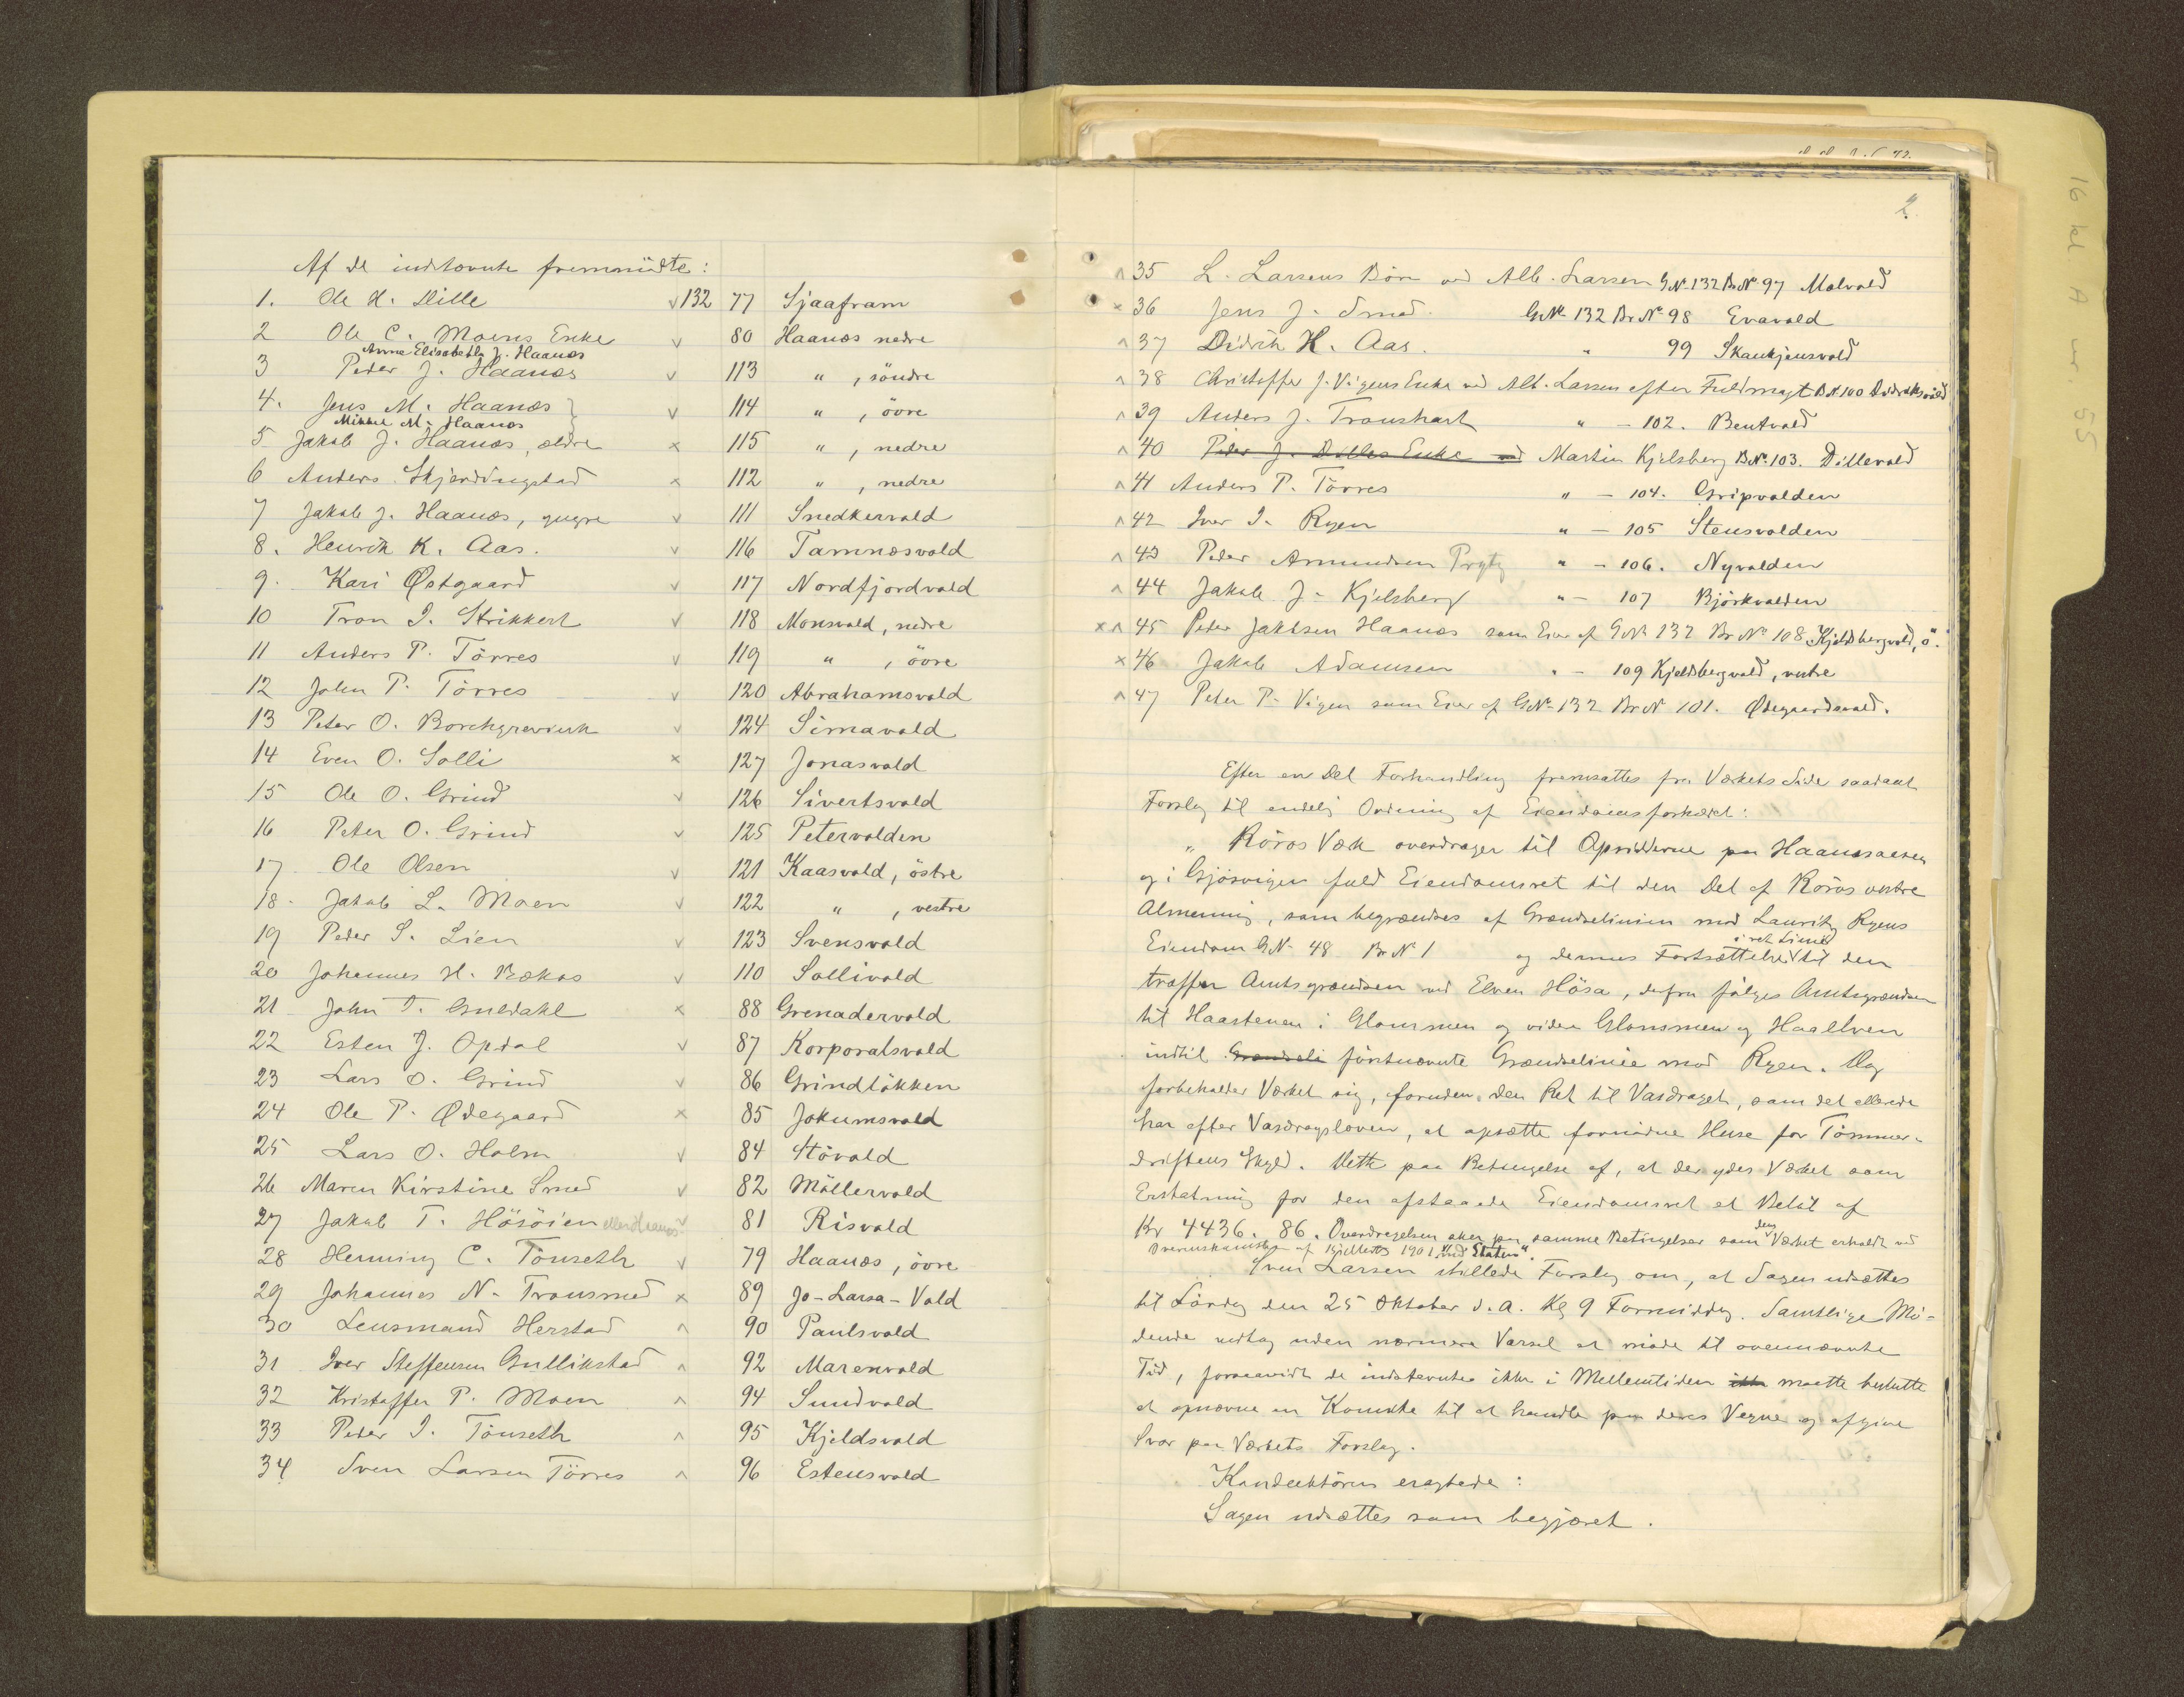 Af de indstevnte fremmødte:
1. Ole H. Dille v 132 77 Sjaafram
2 Ole C. Moens Enke v 80 Haanæs nedre
Anne Elisabeth J. Haanæs
3 Peder J. Haanæs v 113 " , söndre
4. Jens M. Haanæs v 114 " , övre
Mikkel M. Haanæs
5 Jakob J. Haanæs, ældre x 115 " , nedre
6 Anders Skjerdingstad x 112 " , nedre
7 Jakob J. Haanæs, yngre v 111 Snedkervold
8. Henrik K. Aas. v 116 Tamnæsvold
9. Kari Østgaard v 117 Nordfjordvold
10 Tron I. Strikkert v 118 Monsvold, nedre
11 Anders P. Törres v 119 " , övre
12 John P. Törres v 120 Abrahamsvold
13 Peter O. Borchgrevink v 124 Simavold
14 Even O. Solli x 127 Jonasvold
15 Ole O. Grind v 126 Sivertsvold
16 Peter O. Grind v 125 Petervolden
17 Ole Olsen v 121 Kaasvold, östre
18. Jakob L. Moen v 122 " , vestre
19 Peder S. Lien v 123 Svensvold
20 Johannes H. Bækos v 110 Sollivold
21 John T. Guldahl x 88 Grenadervold
22 Esten J. Opdal v 87 Korporalsvold
23 Lars O. Grind v 86 Grindlökken
24 Ole P. Ødegaard x 85 Jokumsvold
25 Lars O. Holm v 84 Stövold
26 Maren Kirstine Smed v 82 Möllervold
27 Jakob T. Hösöien eller Haanæs v 81 Risvold
28 Henning C. Tönseth v 79 Haanæs, övre
29 Johannes N. Tronsmed x 89 Jo-Larsa-Vold
30 Lensmand Herstad ^ 90 Paulsvold
31 Iver Steffensen Gullikstad ^ 92 Marenvold
32 Kristoffer P. Moen ^ 94 Sundvold
33 Peder I. Tönseth ^ 95 Kjeldsvold
34 Sven Larsen Törres ^ 96 Estensvold
2
^ 35 L. Larsens Börn ved Alb. Larsen G.No 132 Br.No 97 Molvold
x 36 Jens J. Smed. G.No 132 Br.No 98 Evavold
^ 37 Didrik H. Aas. " 99 Skankjensvold
^ 38 Christoffer J. Vigens Enke ved Alb. Larsen efter Fuldmagt B.N. 100 Didriksvold
^ 39 Anders J. Tronshart " - 102. Bentvold
^ 40 Peder J. Dilles Enke ved Martin Kjelsberg B.No 103. Dillevold
^ 41 Anders P. Törres " - 104. Gripvolden
^ 42 Iver I. Ryen " - 105 Stensvolden
^ 43 Peder Amundsen Prytz " - 106. Nyvolden
^ 44 Jakob J. Kjelsberg " - 107 Björkvolden
x ^ 45 Peter Jakobsen Haanæs som Eier af G.No 132 Br.No 108 Kjeldsbergvold, ö.
x 46 Jakob Adamsen " - 109 Kjeldsbergvold, vestre
^ 47 Peter P. Vigen som Eier af G.No 132 Br.No 101. Ødegaardsvold.
Efter en Del Forhandling fremsattes fra Værkets Side saadant
Forslag til endelig Ordning af Eiendomsforholdet:
" Röros Værk overdrager til Opsidderne paa Haanæsaasen
og i Gjösvigen fuld Eiendomsret til den Del af Röros vestre
Almenning, som begrændses af Grændselinien mod Lauritz Ryens
Eiendom G.No 48 Br.No 1 og dennes Fortsættelse i ret Linie til den
træffer Amtsgrændsen ved Elven Hösa, derfra fölges Amtsgrændsen
til Haastenen i Glommen og videre Glommen og Haaelven
indtil Grændseli förstnævnte Grændselinie mod Ryen. Dog
forbeholder Værket sig, foruden den Ret til Vasdraget, som det allerede
har efter Vasdragsloven, at opsætte fornödne Huse for Tömmer-
driftens Skyld. Dette paa Betingelse af, at der ydes Værket som
Erstatning for den afstaaede Eiendomsret et Belöb af
Kr 4436.86. Overdragelsen sker paa samme Betingelser som Værket erholdt ved
den Overenskomst af 1901 med Staten".
Sven Larsen stillede Forslag om, at Sagen udsættes
til Lördag den 25 Oktober d.A. Kl 9 Formiddag. Samtlige Mö-
dende vedtog uden nærmere Varsel at möde til ovennævnte
Tid, forsaavidt de indstevnte ikke i Mellemtiden ikke maatte beslutte
at opnævne en Komite til at handle paa deres Vegne og afgive
Svar paa Værkets Forslag.
Konduktören eragtede:
Sagen udsættes som begjæret.
16 kl A nr. 55